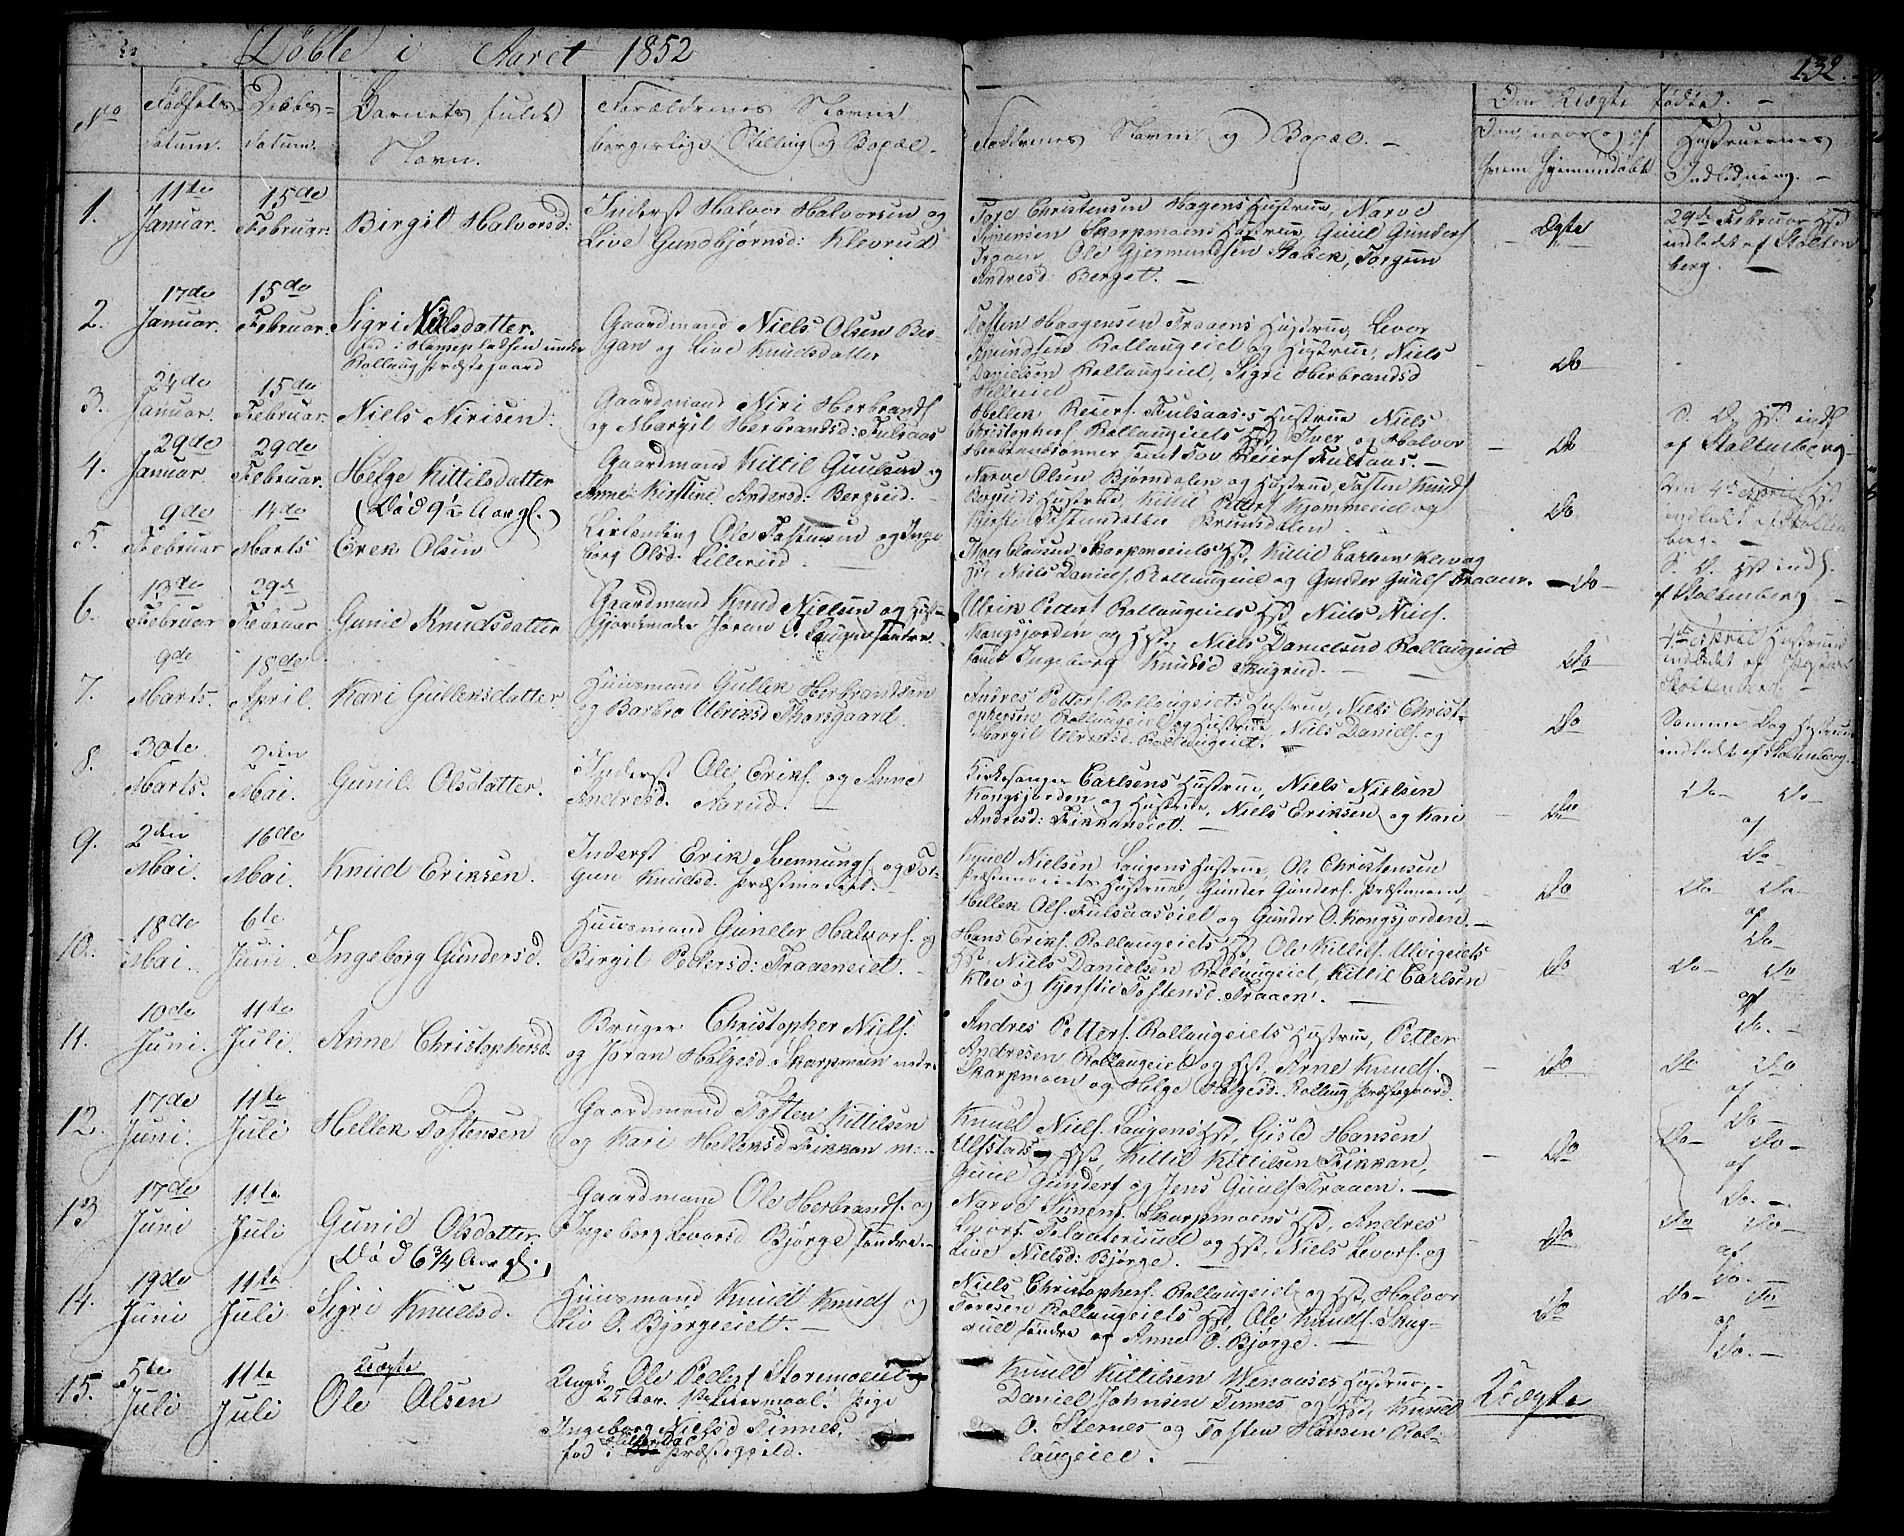 Døbte i Aaret 1852
132.
No
Fødsels-
datum.
Daabs-
datum.
Barnets fulde
Navn.
Forældrenes Navne
borgerlige Stilling og Bopæl.
Faddrenes Navne og Bopæl. -
Den Uægte fødte. -
Om, naar og af
hvem hjemmedøbt
Hustruernes
Indledning. -
1.
11te
Januar.
15de
Februar.
Birgit Halvorsd:
Inderst Halvor Halvorsen og
Live Gundbjørnsd: Klevrud
Tore Christensen Hagens Hustrue, Narve
Simensen Skarpmoens Hustrue, Guul Gunders
Traaen, Ole Gjermundsen Stabek, Torgun
Andresd: Berget. -
Ægte
29de Februar Hst
indledet af Stolten
berg. -
2.
17de
Januar.
15de
Februar.
Sigri Nielsdatter.
Rollaug Præstegaard
Gaardmand Niels Olsen Ber-
gan og Live Knudsdatter
Tosten Haagensen Traaens Hustrue, Levor
Amundsen Rollaugeiet og Hustrue, Niels
Danielsen Rollaugeiet, Sigri Herbrandsd
Helleeiet
Do
3.
24de
Januar.
15de
Februar.
Niels Nirisen.
Gaardmand Niri Herbrands.
og Margit Herbrandsd: Fulsaas
Hellek Reiers. Fulsaas's Hustrue Niels
Christophers. Rollaugeiets Hst, Iver og Halvor
Herbrandsønner samt Tov Reiers. Fulsaas. -
Do
S. D. Hst. indl
af Stoltenberg
4.
29de
Januar.
29de
Februar.
Helge Kittilsdatter
(Død 9½ Aar gl.)
Gaardmand Kittil Guulsen og
Anne Kirstine Andersd: Bergseid. -
Narve Olsen Bjørndalen og Hustrue, Tosten Knuds
Hustrue, Kittil Petters Kjemmeeid og
Kjersti Tostensdatter Brunsdalen
Do
Den 4de April Hst
indledt af Stolten
berg. -
5.
9de
Februar
14de
Marts
Erek Olsen
Ole Tostensen og Inge
borg Olsd: Lillereid. -
Thor Clausen Skarpmoeiets Hst, Kittil Carlsen Klev og
Hst, Niels Daniels. Rollaugeiet og Gunder Guuls Traaen.
Do
S. D. Hst indl.
af Stoltenberg -
6.
13de
Februar
29de
Februar
Gunil Knudsdatter
Gaardmand Knud Nielsen og
Gjordemoder Jøran O. Laugen søndre.
Ulrik Petters Rollaugeiets Hst, Niels Niels.
Kongsjorden og Hst, Niels Danielsen Rollaugeiet
samt Ingeborg Knudsd Skugrud. -
Do
4de April Hustruen
indledet af
Stoltenberg -
7.
9de
Marts.
18de
April.
Kari Gulleksdatter.
Huusmand Gullek Herbrandsen
og Barbro Ulriksd Thorsgaard.
Andres Petters. Rollaugeiets Hustrue, Niels Christ-
ophersen Rollaugeiet og Hustrue, Niels Daniels. og
Margit Ulriksd. Rollaugeiet.
Do
Samme Dag Hustruen
indledet af Stoltenberg.
8.
30te
Marts.
2den
Mai.
Gunil Olsdatter.
Inderst Ole Eriks. og Anne
Andresd. Narud. -
Kirkesanger Carlsens Hustrue, Niels Nielsen
Kongsjorden og Hustrue, Niels Eriksen og Kari
Andresd: Fikkaneiet. -
Do
Do- Do-
af
Do-
9.
2den
Mai.
16de
Mai.
Knud Eriksen.
Inderst Erik Svennungs. og Tor-
gun Knudsd. Præstmoeiet.
Knud Nielsen Laugens Hustrue, Ole Christensen
Præstemoeiets Hustrue, Gunder Gunders. Præstmoen,
Hellek Ols. Fulsaaseiet og Gunder O. Kongsjorden. -
Do
Do- Do-
af
Do-
10.
18de
Mai.
6te
Juni.
Ingeborg Gundersd.
Huusmand Gunder Halvors. og
Birgit Pedersd: Traaeneiet. -
Hans Eriks. Rollaugeiets Hst, Ole Kittils. Ulvigeiets
Hst, Niels Danielsen Rollaugeiet, Kittil Carlsen
Klev og Kjerstie Tostensd. Traaen. -
Do
Do- Do
af
Do. -
11.
10de
Juni.
11te
Juli.
Anne Christophersd.
Bruger Christopher Niels.
og Jøran Helgesd. Skarpmoen nedr.
Andres Petters. Rollaugeiets Hustrue, Petter
Andresen Rollaugeiet og Hst, Arne Knuds.
Skarpmoen og Helge Helgesd. Rollaug Præstegaard.
Do
Do Do
af
Do -
12.
17de
Juni.
11te
Juli
Hellek Tostensen
Gaardmand Tosten Kittilsen
og Kari Helleksd Fikkan m:.
Knud Niels. Laugens Hst, Gisle Hansen
Ulfstads Hst, Kittil Kittilsen Fikkan,
Guul Gunders og Jens Guuls Traaen. -
Do
Do- Do-
af
Do. -
13
17de
Juni
11te
Juli
Gunil Olsdatter.
(Død 6¾ Aar gl.)
Gaardmand Ole Herbrands. og
Ingeborg Levorsd Bjørge søndre. -
Narve Simens. Skarpmoens Hst, Andres
og Hst, Niels Levors. og
Live Nielsd: Bjørge. -
Do
Do Do-
af
Do. -
14.
19de
Juni
11te
Juli
Sigri Knudsd.
Huusmand Knud Knuds og
Liv O. Bjørgeeiet. -
Niels Christophers. Rollaugeiet og Hst, Halvor
Toresen Rollaugeiets Hst, Ole Knuds. Skug-
rud søndre og Anne O. Bjørge. -
Do
Do- Do
af
Do. -
15.
5te
Juli
11te
Juli
Uægte
Ole Olsen
Ungk. Ole Peders Storemoeiet og
25 Aar. 1ste Leiermaal: Pige
Ingeborg Nielsd Finnes,
fød i Præstegjeld.
Knud Kittilsen Wenaases Hustrue,
Daniel Johnsen Finnes og Hst, Knud
O. Sternes og Tosten Hansen Rol-
laugeiet.
Uægte